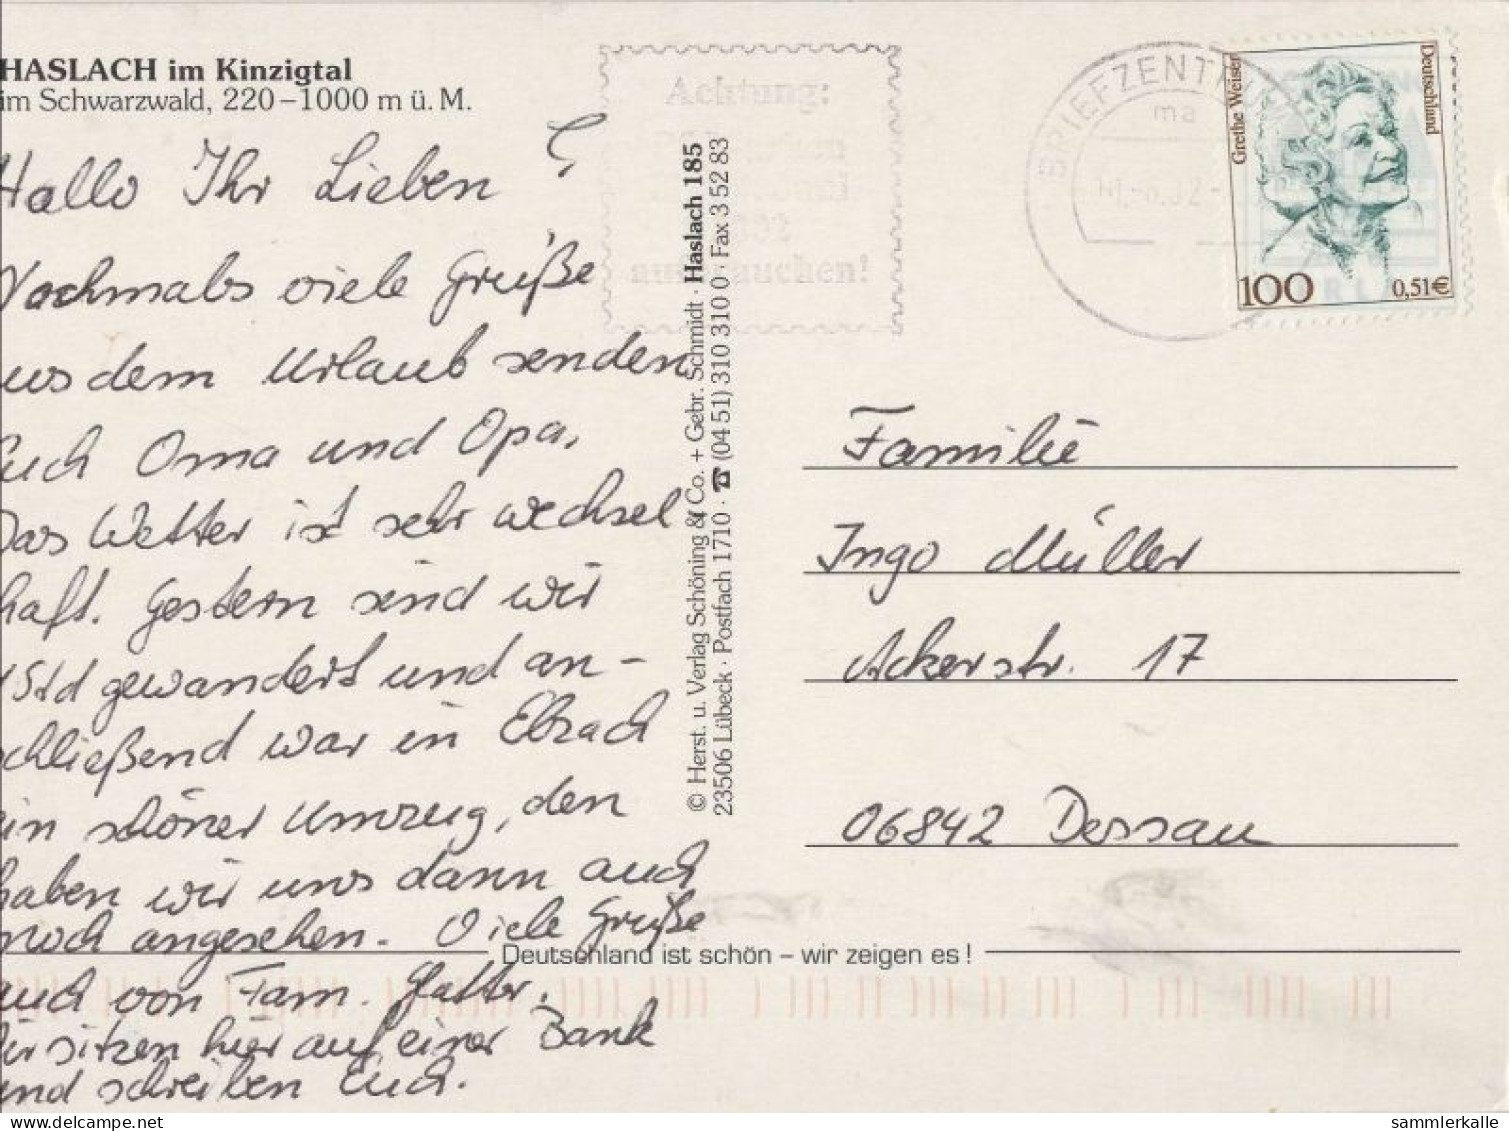 HASLACH im Kinzigtal
im Schwarzwald, 220–1000 m ü. M.
Hallo Ihr Lieben !
Nochmals viele Grüße
aus dem Urlaub senden
Euch Oma und Opa.
Das Wetter ist sehr wechsel
haft. Gestern sind wir
Std gewandert und an-
schließend war in Elzach
ein schöner Umzug, den
haben wir uns dann auch
noch angesehen. Viele Grüße
auch von Fam.
Wir sitzen hier auf einer Bank
und schreiben Euch.
© Herst. u. Verlag Schöning & Co. + Gebr. Schmidt · Haslach 185
23506 Lübeck · Postfach 1710 · ☎ (04 51) 310 310 0 · Fax 3 52 83
Achtung:
aufbrauchen!
BRIEFZENTRUM
ma
Grethe Weiser
Deutschland
100
0,51€
Familie
Ingo Müller
Ackerstr. 17
06842 Dessau
Deutschland ist schön – wir zeigen es !
oldthing.net
sammlerkalle